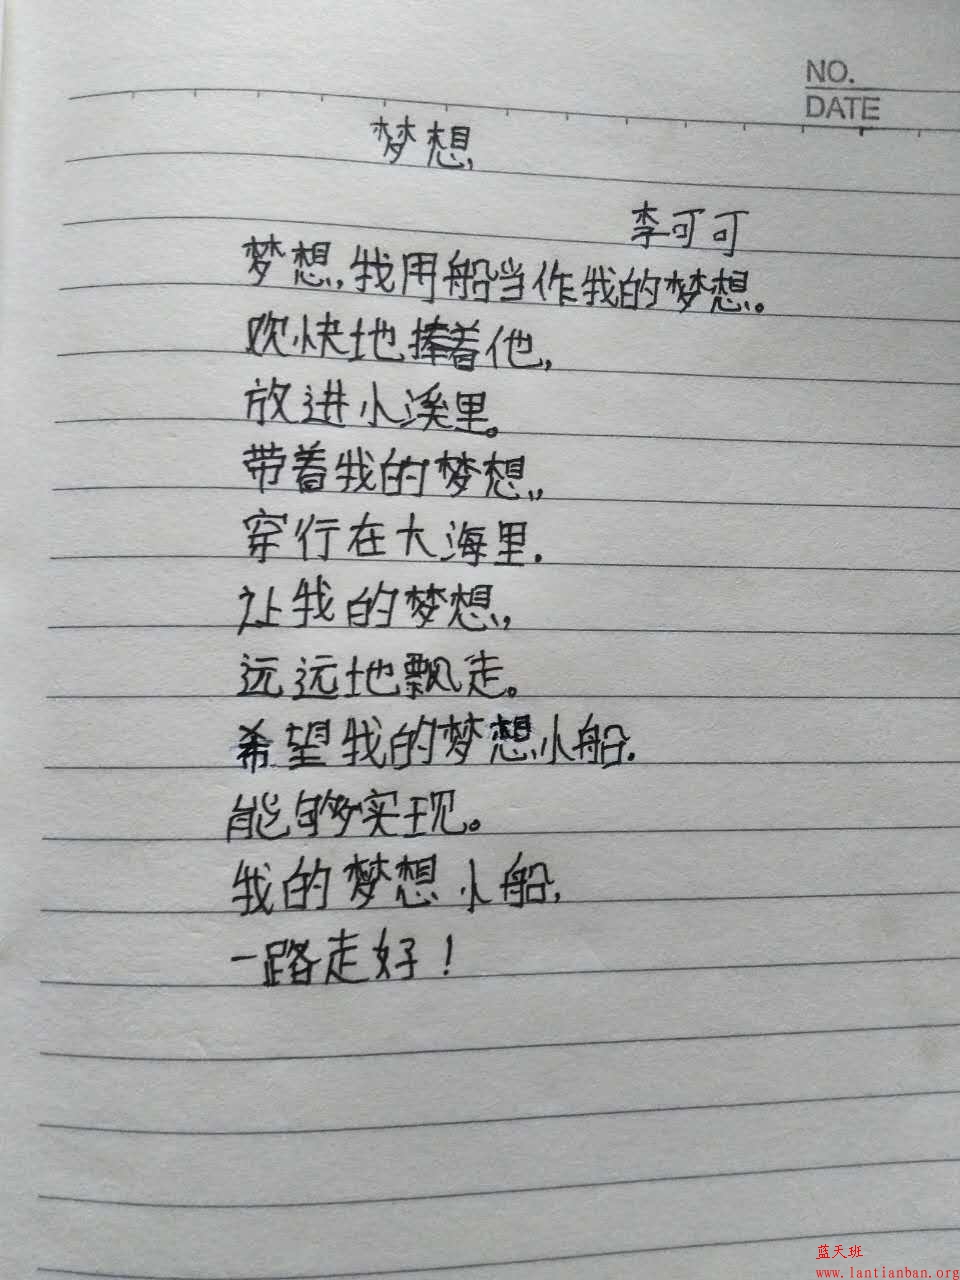 NO.
DATE
梦想
李可可
梦想,我用船当作我的梦想。
欢快地捧着他,
放进小溪里。
带着我的梦想,
穿行在大海里.
让我的梦想,
远远地飘走。
希望我的梦想小船.
能够实现。
我的梦想小船,
一路走好!
蓝天班
www.lantianban.org